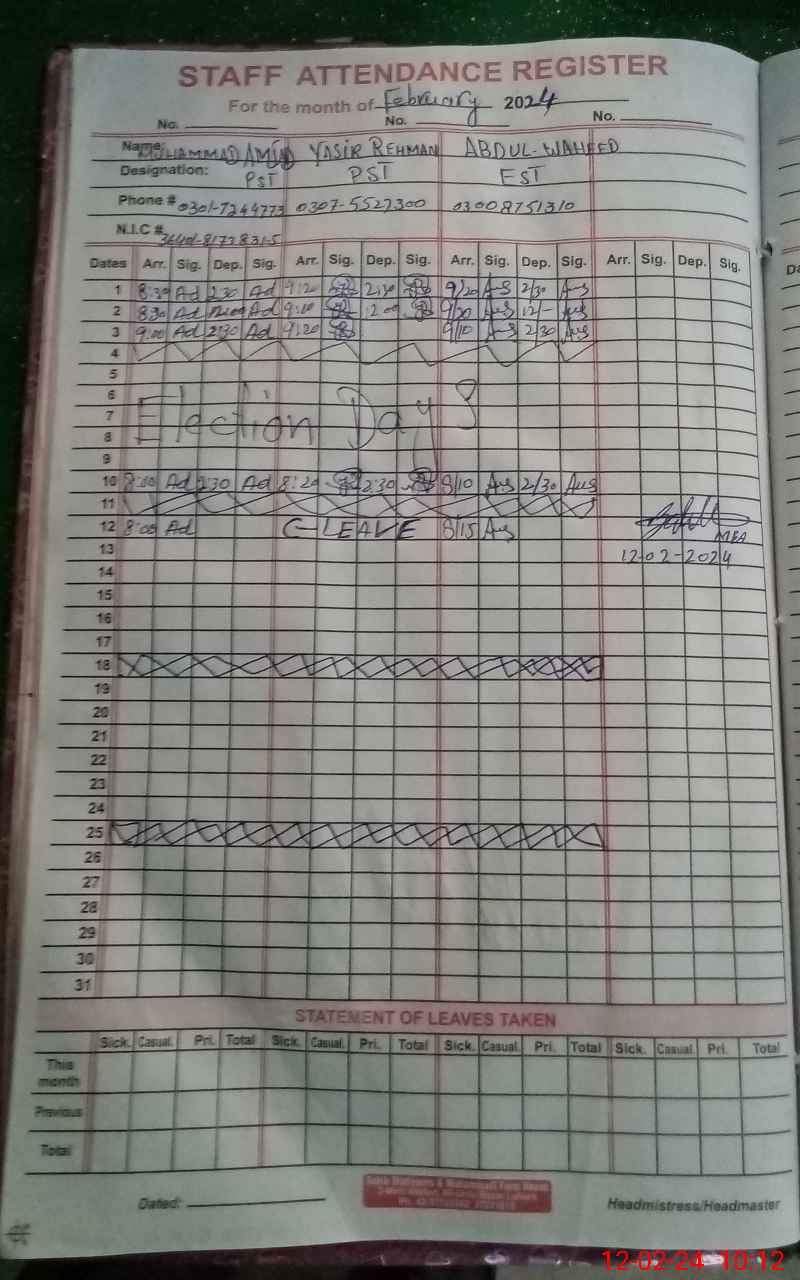 STAFF ATTENDANCE REGISTER
For the month of February 2024
No. No. No.
Name: MUHAMMAD AMJAD YASIR REHMAN ABDUL-WAHEED
Designation: PST PST EST
Phone # 0301-7244773 0307-5527300 03008751310
N.I.C #
Dates Arr. Sig. Dep. Sig. Arr. Sig. Dep. Sig. Arr. Sig. Dep. Sig. Arr. Sig. Dep. Sig.
1 8:30 Ad 2:30 Ad 9:20 2:30 9/20 2/30
2 8:30 Ad 12:00 Ad 9:10 12:00 9/20 12/-
3 9:00 Ad 2:30 Ad 9:20 9/10 2/30
4
5
6
7 Election Days
8
9
10 8:00 Ad 2:30 Ad 8:20 2:30 8/10 2/30
11
12 8:00 Ad C-LEAVE 8/15
MEA
13 12-02-2024
14
15
16
17
18
19
20
21
22
23
24
25
26
27
28
29
30
31
STATEMENT OF LEAVES TAKEN
Sick. Casual. Pri. Total Sick. Casual. Pri. Total Sick. Casual. Pri. Total Sick. Casual. Pri. Total
This month
Previous
Total
Dated: Headmistress/Headmaster
12-02-24 10:12